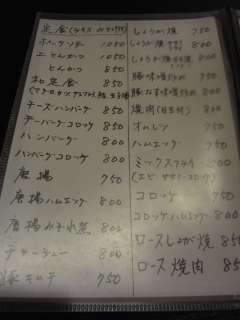 定食
ポークソテー 1050
上とんかつ 1050
とんかつ 850
和定食 850
チーズハンバーグ 850
チーズバーグコロッケ 850
ハンバーグ 800
ハンバーグコロッケ 800
唐揚 750
唐揚ハムエッグ 800
唐揚みぞれ煮 800
チャーシュー 800
豚キムチ 750
しょうが焼 750
しょうが焼 800
しょうが焼 800
豚味噌炒め 750
豚なす味噌炒め 800
焼肉 800
オムレツ 750
ハムエッグ 750
ミックスフライ 800
(エビ コロッケ)
コロッケ 750
コロッケハムエッグ 800
ロースしょうが焼 850
ロース焼肉 850